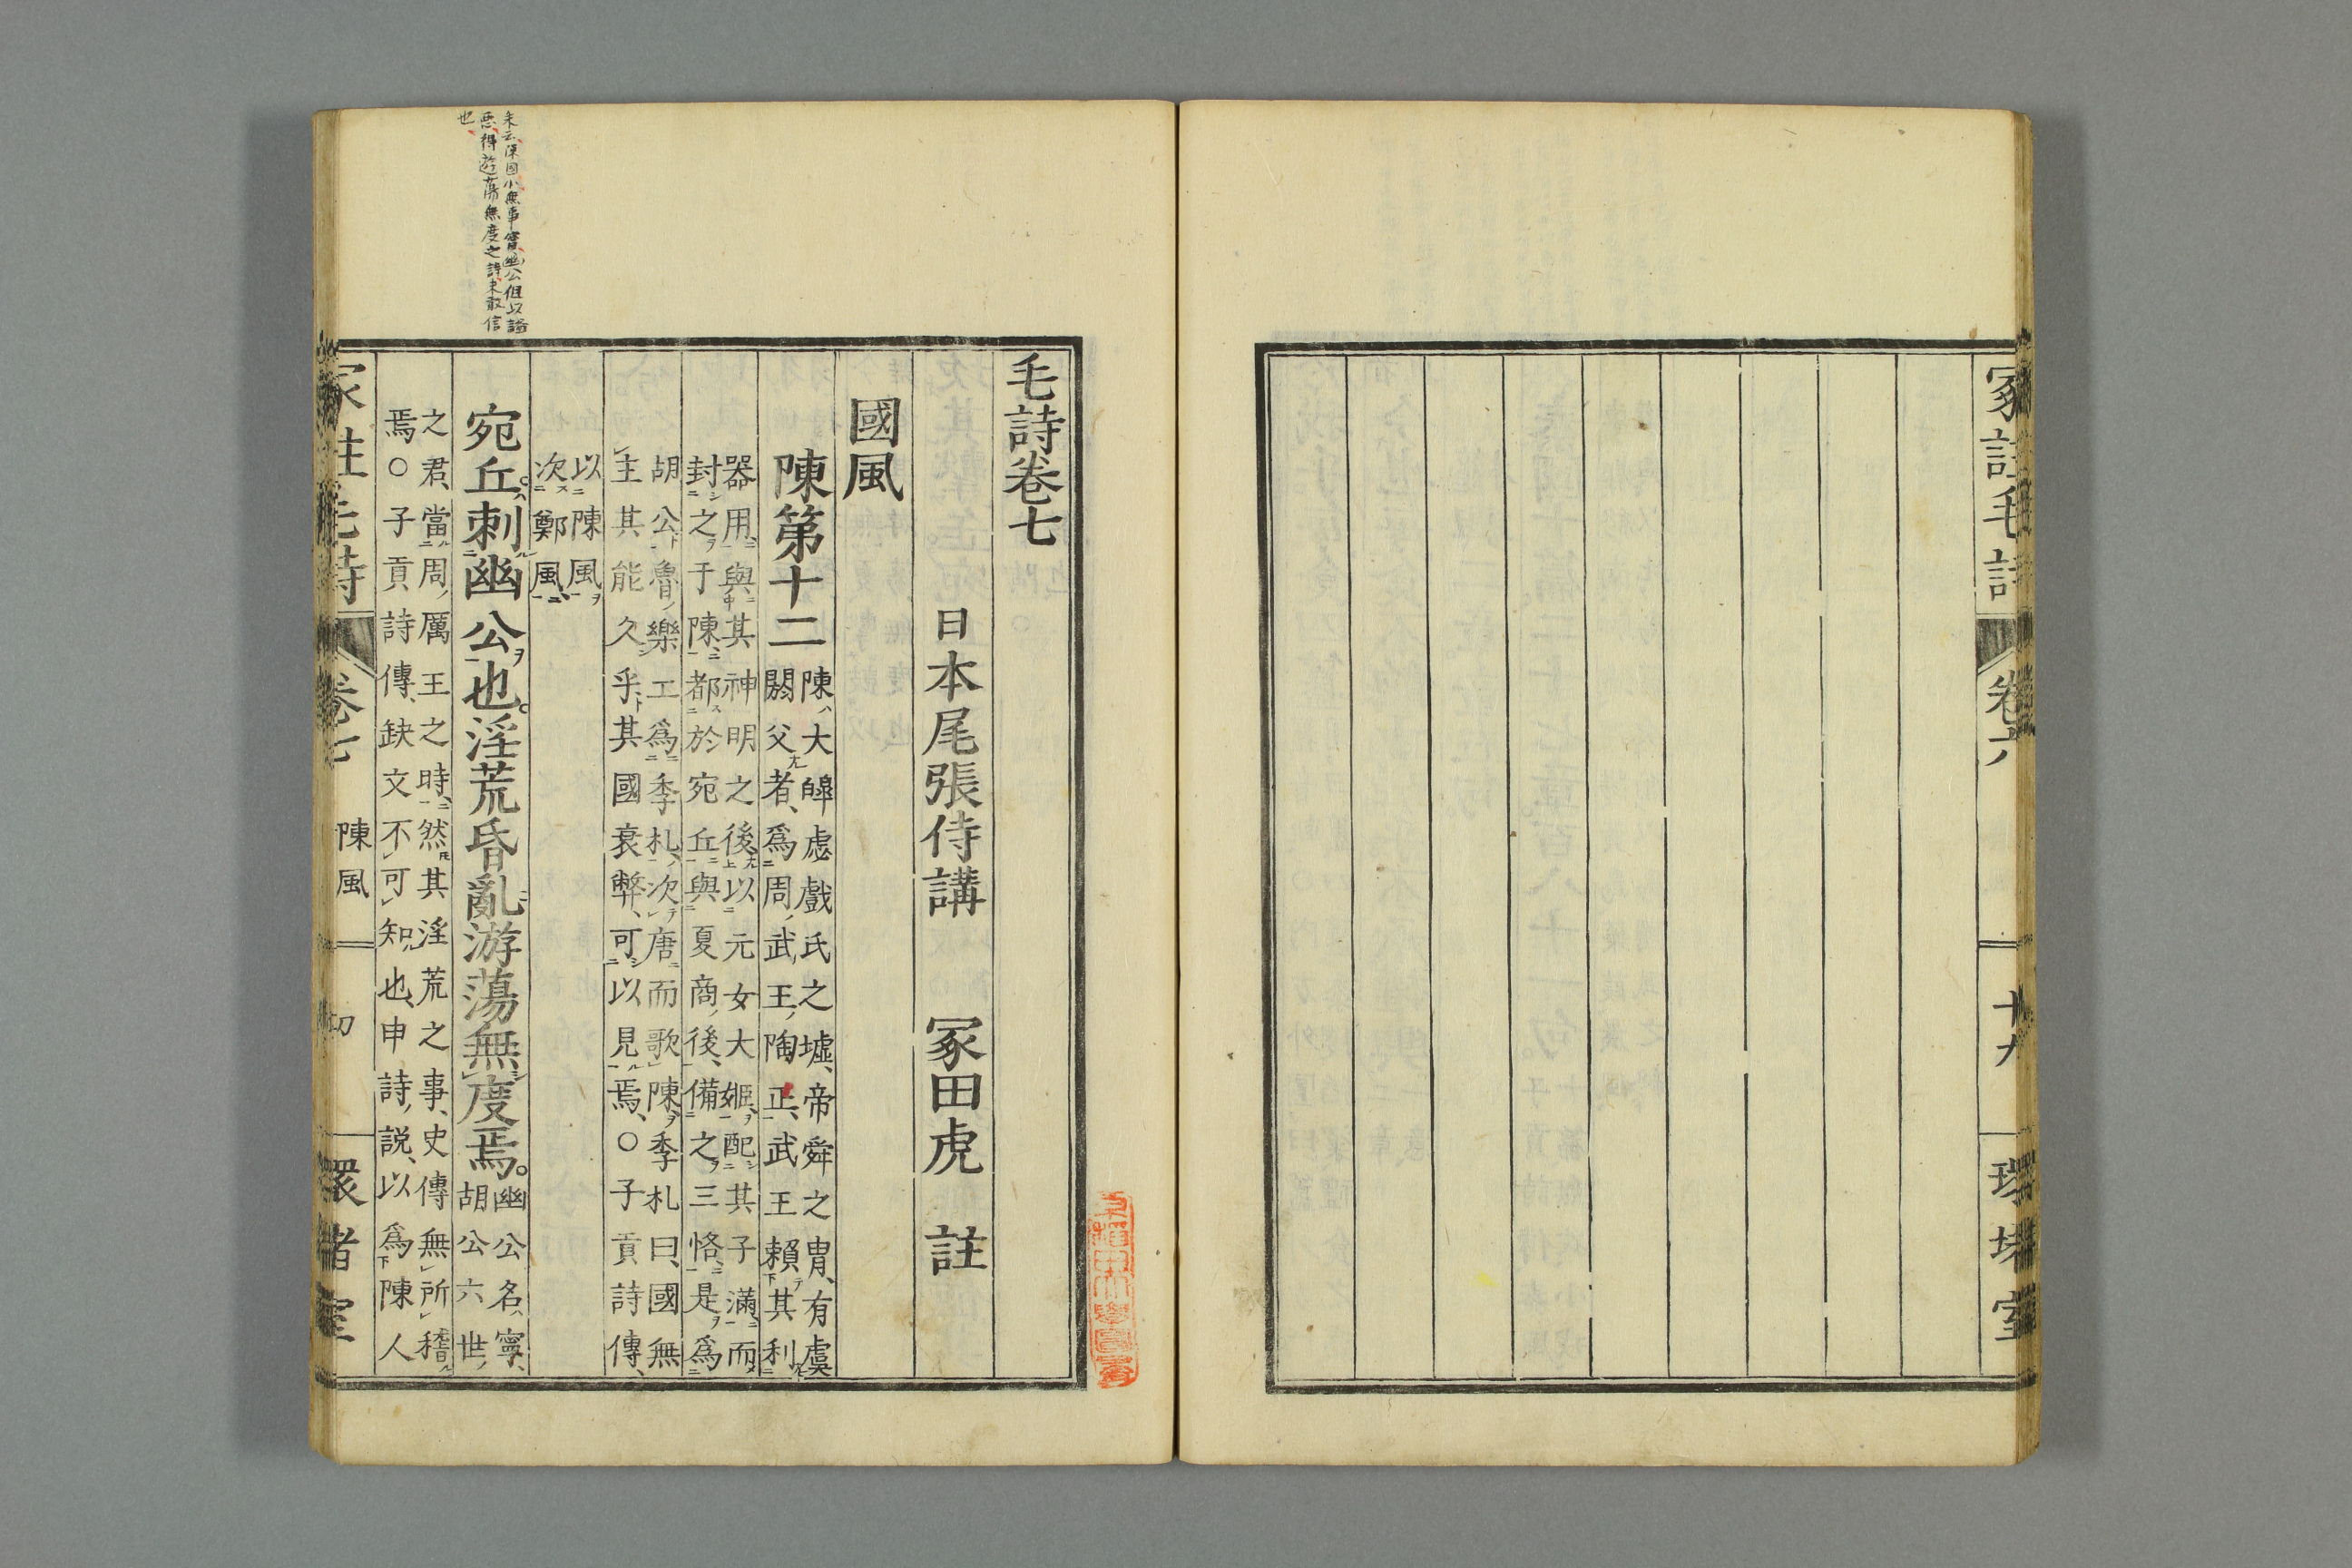 冢註毛詩
卷六
十九
環堵室
毛詩卷七
日本尾張侍講 冢田虎 註
國風
陳第十二
陳ハ大皥虙戲氏之墟、帝舜之冑、有虞
閼父者、爲周ノ武王ノ陶正、武王賴其利
器用與其神明之後以元女大姬配其子滿而
封之于陳都於宛丘與夏商ノ後備之三恪是爲
胡公魯ノ樂工爲季札ノ次唐而歌陳季札曰、國無
主其能久乎、其國衰弊、可以見焉、○子貢詩傳、
以陳風
次鄭風
宛丘。刺幽公也。淫荒昏亂游蕩無度焉。
幽公名、寧、
胡公六世ノ
之君、當周ノ厲王之時、然其淫荒之事、史傳無所稽
焉○子貢詩傳、缺文不可知也、申詩ノ説、以爲陳人
陳風
卷七
環堵室
朱云陳國小無事實幽公但以謚
惡得游蕩無度之詩未敢信
也